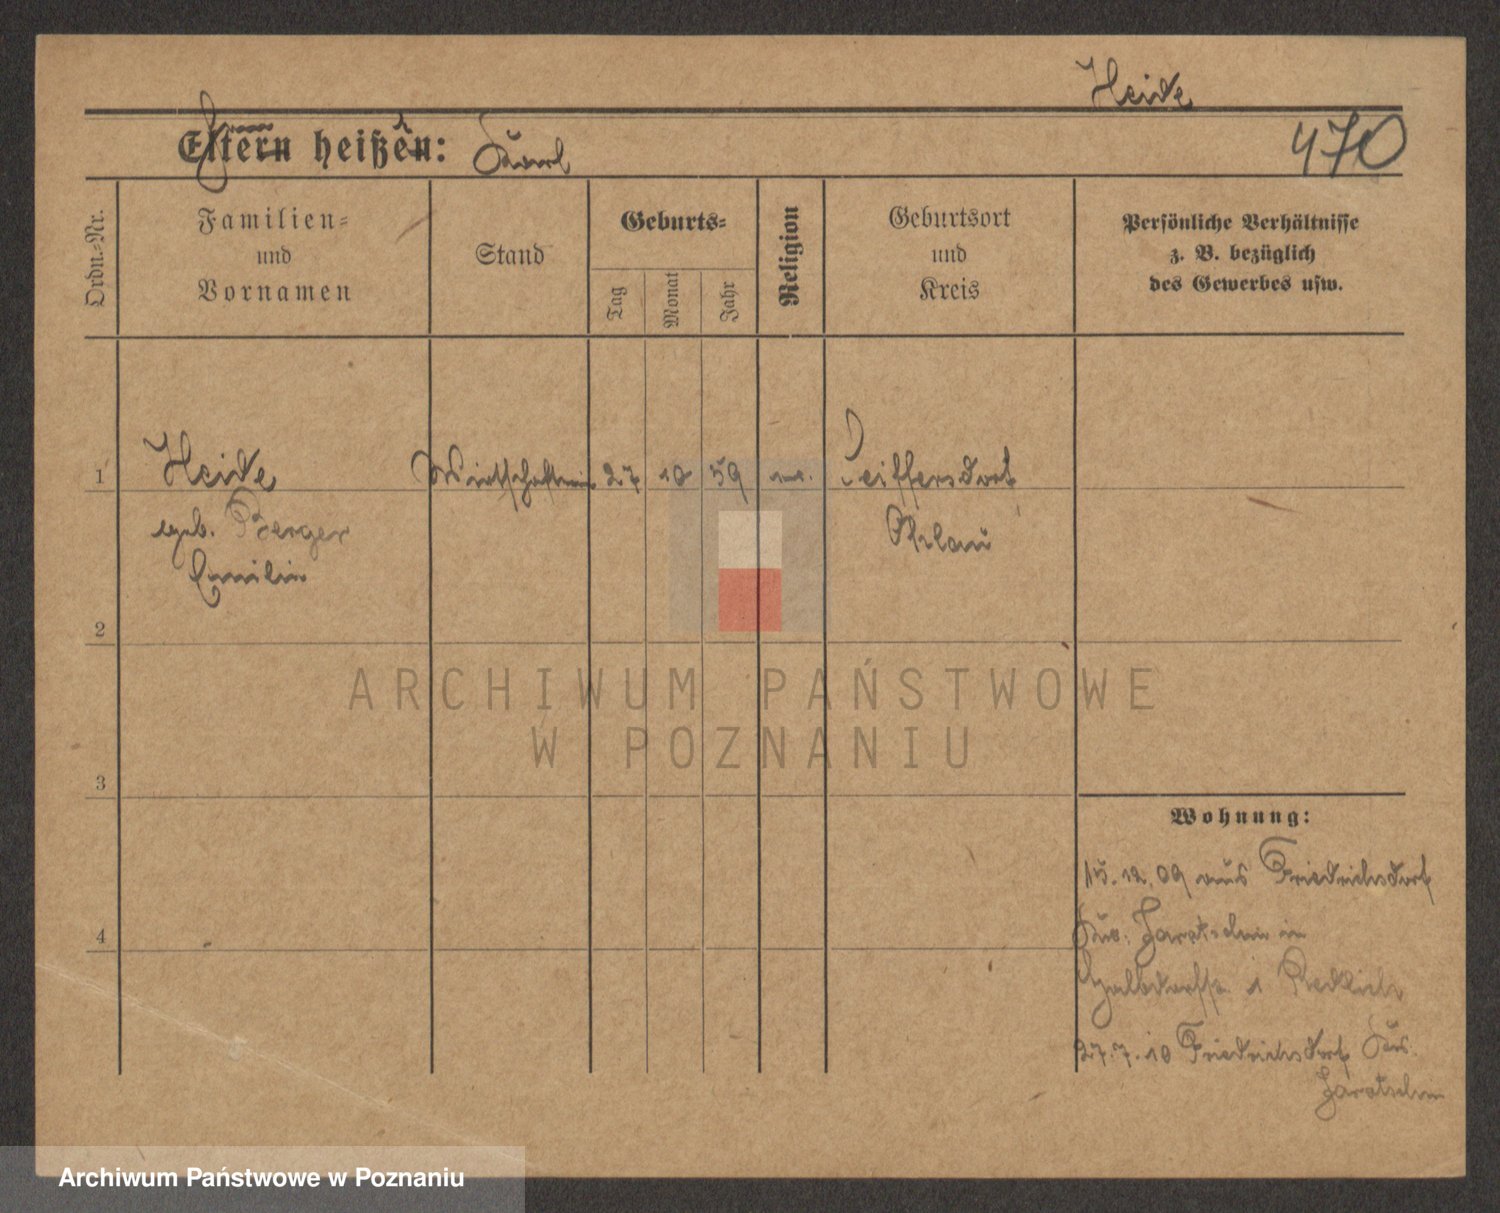 Heide
Eltern heißen: Karl
470
Ordn.-Nr.
Familien-
und
Vornamen
Stand
Geburts-
Tag
Monat
Jahr
Religion
Geburtsort
und
Kreis
Persönliche Verhältnisse
z. B. bezüglich
des Gewerbes usw.
1
Heide
Wirtschafterin
27
10
59
ev.
Seiffersdorf
Ohlau
geb. Berger
Emilie
2
3
4
Wohnung:
15.12.09 aus Friedrichsdorf
Krs. Jarotschin in
1
27.7.10 Friedrichsdorf Krs.
Jarotschin
ARCHIWUM PAŃSTWOWE
W POZNANIU
Archiwum Państwowe w Poznaniu